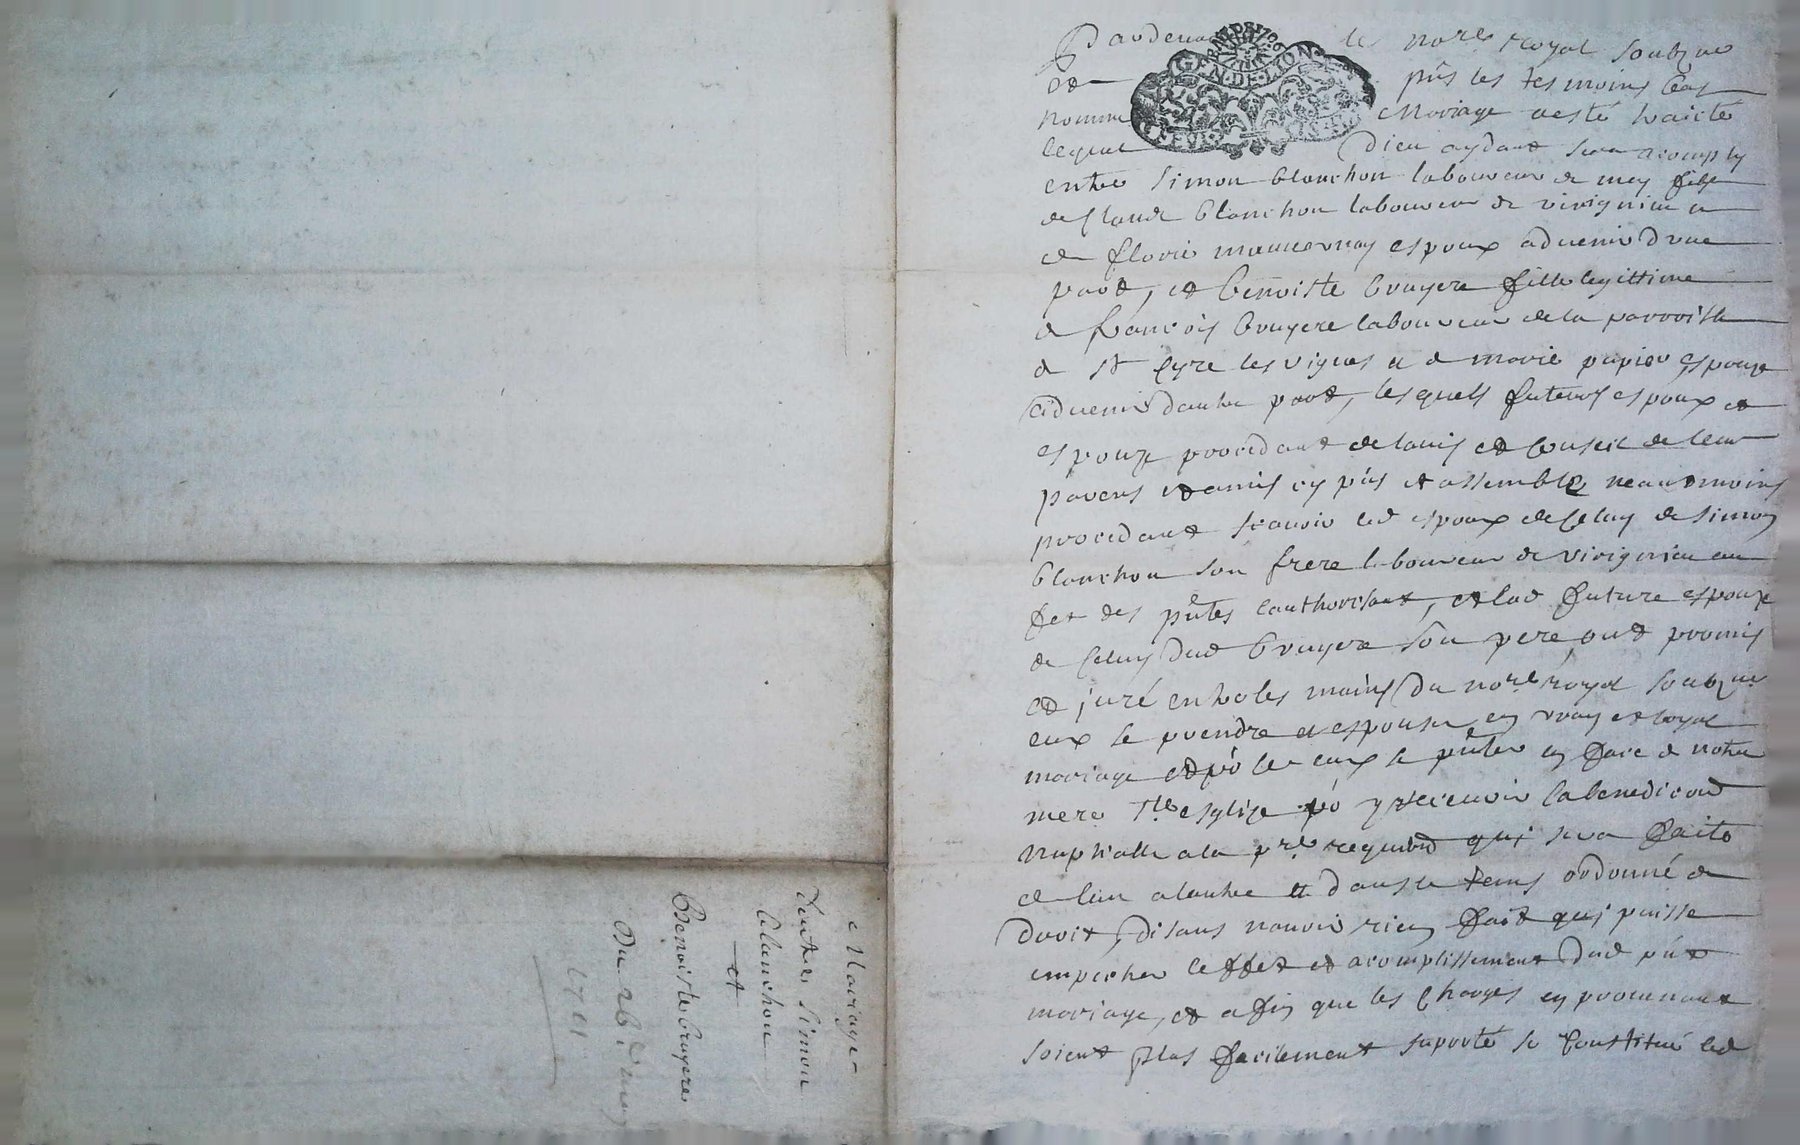 Mariage
dentre Simon
blanchon
et
Benoiste bruyere
Du 26e
1711
Pardevant le nore royal soubzne
et pñs les tesmoins bas
nommé Mariage a esté traicté
lequel Dieu aydant sera acomply
entre Simon blanchon laboureur de
de Claude blanchon laboureur de virignieu et
de florie espoux aduenir dune
part, et benoiste bruyere fille legittime
de francois bruyere laboureur de la parroisse
de St Cyre les vignes et de marie papier espouze
aduenir dautre part, lesquels futurs espoux et
espouze procedant de lauis et Conseil de leur
parens et amis cy pñs et assemblé neantmoins
procedant scauoir led espoux de Celuy de Simon
blanchon son frere laboureur de virignieu
des pñtes lauthorisant, et lad future espouze
de Celuy dud bruyere son pere, ont promis
et juré entre les mains du nore royal soubzne
eux se prendre et espouser en vray et loyal
mariage et po ce eux se pñter en face de notre
mere Ste esglize po y receuoir la benediction
nuptialle a la pre requion qui sera faite
de lun a lautre et dans le tems ordonné de
droit, disans nauoir rien fait qui puisse
empecher leffet et acomplissement dud pñt
mariage, et afin que les Charges en prouenant
soient plus facilement suporté se Constitué led
GEN. DE. LION